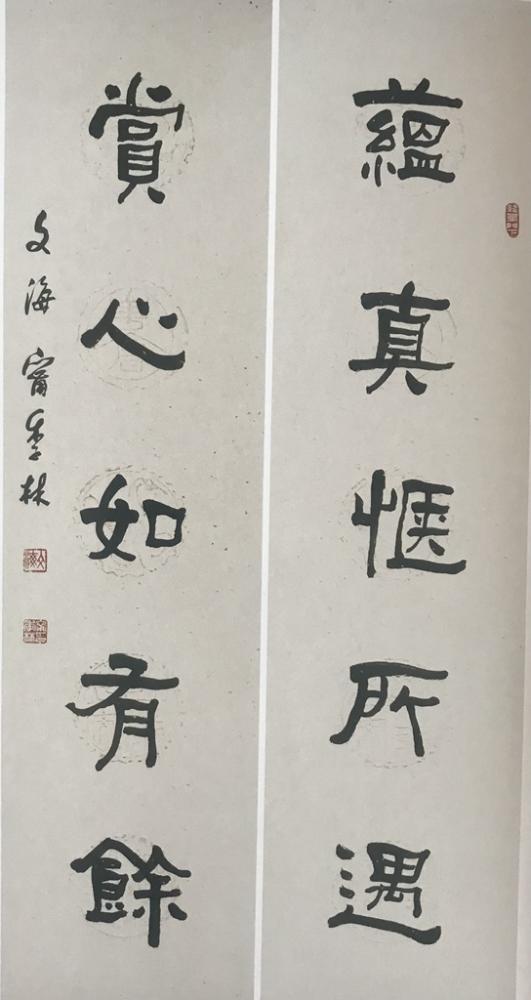 蘊真愜所遇
賞心如有餘
文海甯季林